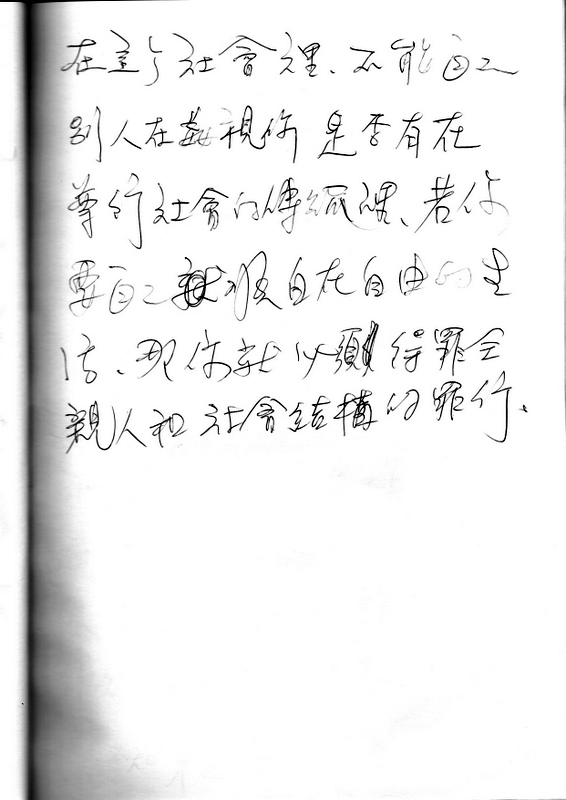 在這個社會裡、不能自己
別人在監視你 是否有在
尊行社會的傳統裡、若你
要自己 很自在自由的生
活、那你就必須得罪全
親人和社會結構的罪行.